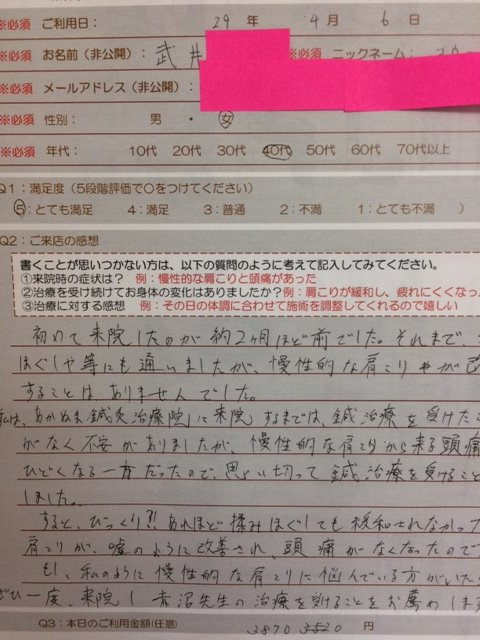 ※必須 ご利用日： 29 年 4 月 6 日
※必須 お名前（非公開）： 武井 ※必須 ニックネーム：
※必須 メールアドレス（非公開）：
※必須 性別： 男 ・ 女
※必須 年代： 10代 20代 30代 40代 50代 60代 70代以上
Q1：満足度（5段階評価で○をつけてください）
5：とても満足 4：満足 3：普通 2：不満 1：とても不満 ）
Q2：ご来店の感想
書くことが思いつかない方は、以下の質問のように考えて記入してみてください。
①来院時の症状は？ 例：慢性的な肩こりと頭痛があった
②治療を受け続けてお身体の変化はありましたか？例：肩こりが緩和し、疲れにくくなっ
③治療に対する感想 例：その日の体調に合わせて施術を調整してくれるので嬉しい
初めて来院したのが約2ヶ月ほど前でした。それまで、
ほぐしや等にも通いましたが、慢性的な肩こりが改
することはありませんでした。
私は、あかぬま鍼灸治療院に来院するまでは、鍼治療を受けたこ
がなく不安がありましたが、慢性的な肩こりから来る頭痛
ひどくなる一方だったので、思い切って鍼治療を受けること
しました。
すると、びっくり?!あれほど揉みほぐしても緩和されなかった
肩こりが、嘘のように改善され、頭痛がなくなったので
もし、私のように慢性的な肩こりに悩んでいる方がいた
ぜひ一度、来院し赤沼先生の治療を受けることをお薦めしま
Q3：本日のご利用金額(任意) 3870 3520 円